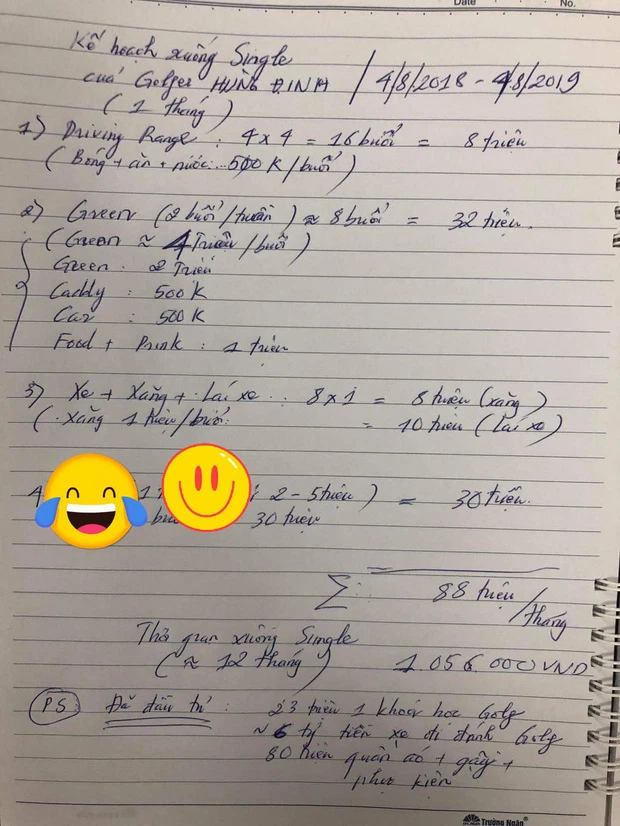 Date No.
Kế hoạch xuống Single
của Golfer HÙNG ĐINH / 4/8/2018 - 4/8/2019
( 1 tháng )
1) Driving Range : 4 x 4 = 16 buổi = 8 triệu
( Bóng + ăn + nước : 500 K / buổi )
2) Green (2 buổi / tuần ) ≈ 8 buổi = 32 triệu.
( Green ≈ 4 Triệu / buổi )
Green : 2 Triệu
Caddy : 500 K
Car : 500 K
Food + Drink : 1 triệu
3) Xe + Xăng + Lái xe : 8 x 1 = 8 triệu (xăng)
( Xăng 1 triệu / buổi = 10 triệu ( Lái xe )
4 2 - 5 triệu ) = 30 triệu.
30 triệu
Σ : 88 triệu / tháng
Thời gian xuống Single
( ≈ 12 tháng ) 1.056.000 VND
PS: Đã đầu tư : 23 triệu 1 khoá học Golf
≈ 6 tỷ tiền xe đi đánh Golf
80 triệu quần áo + gậy +
phụ kiện
Trường Ngân